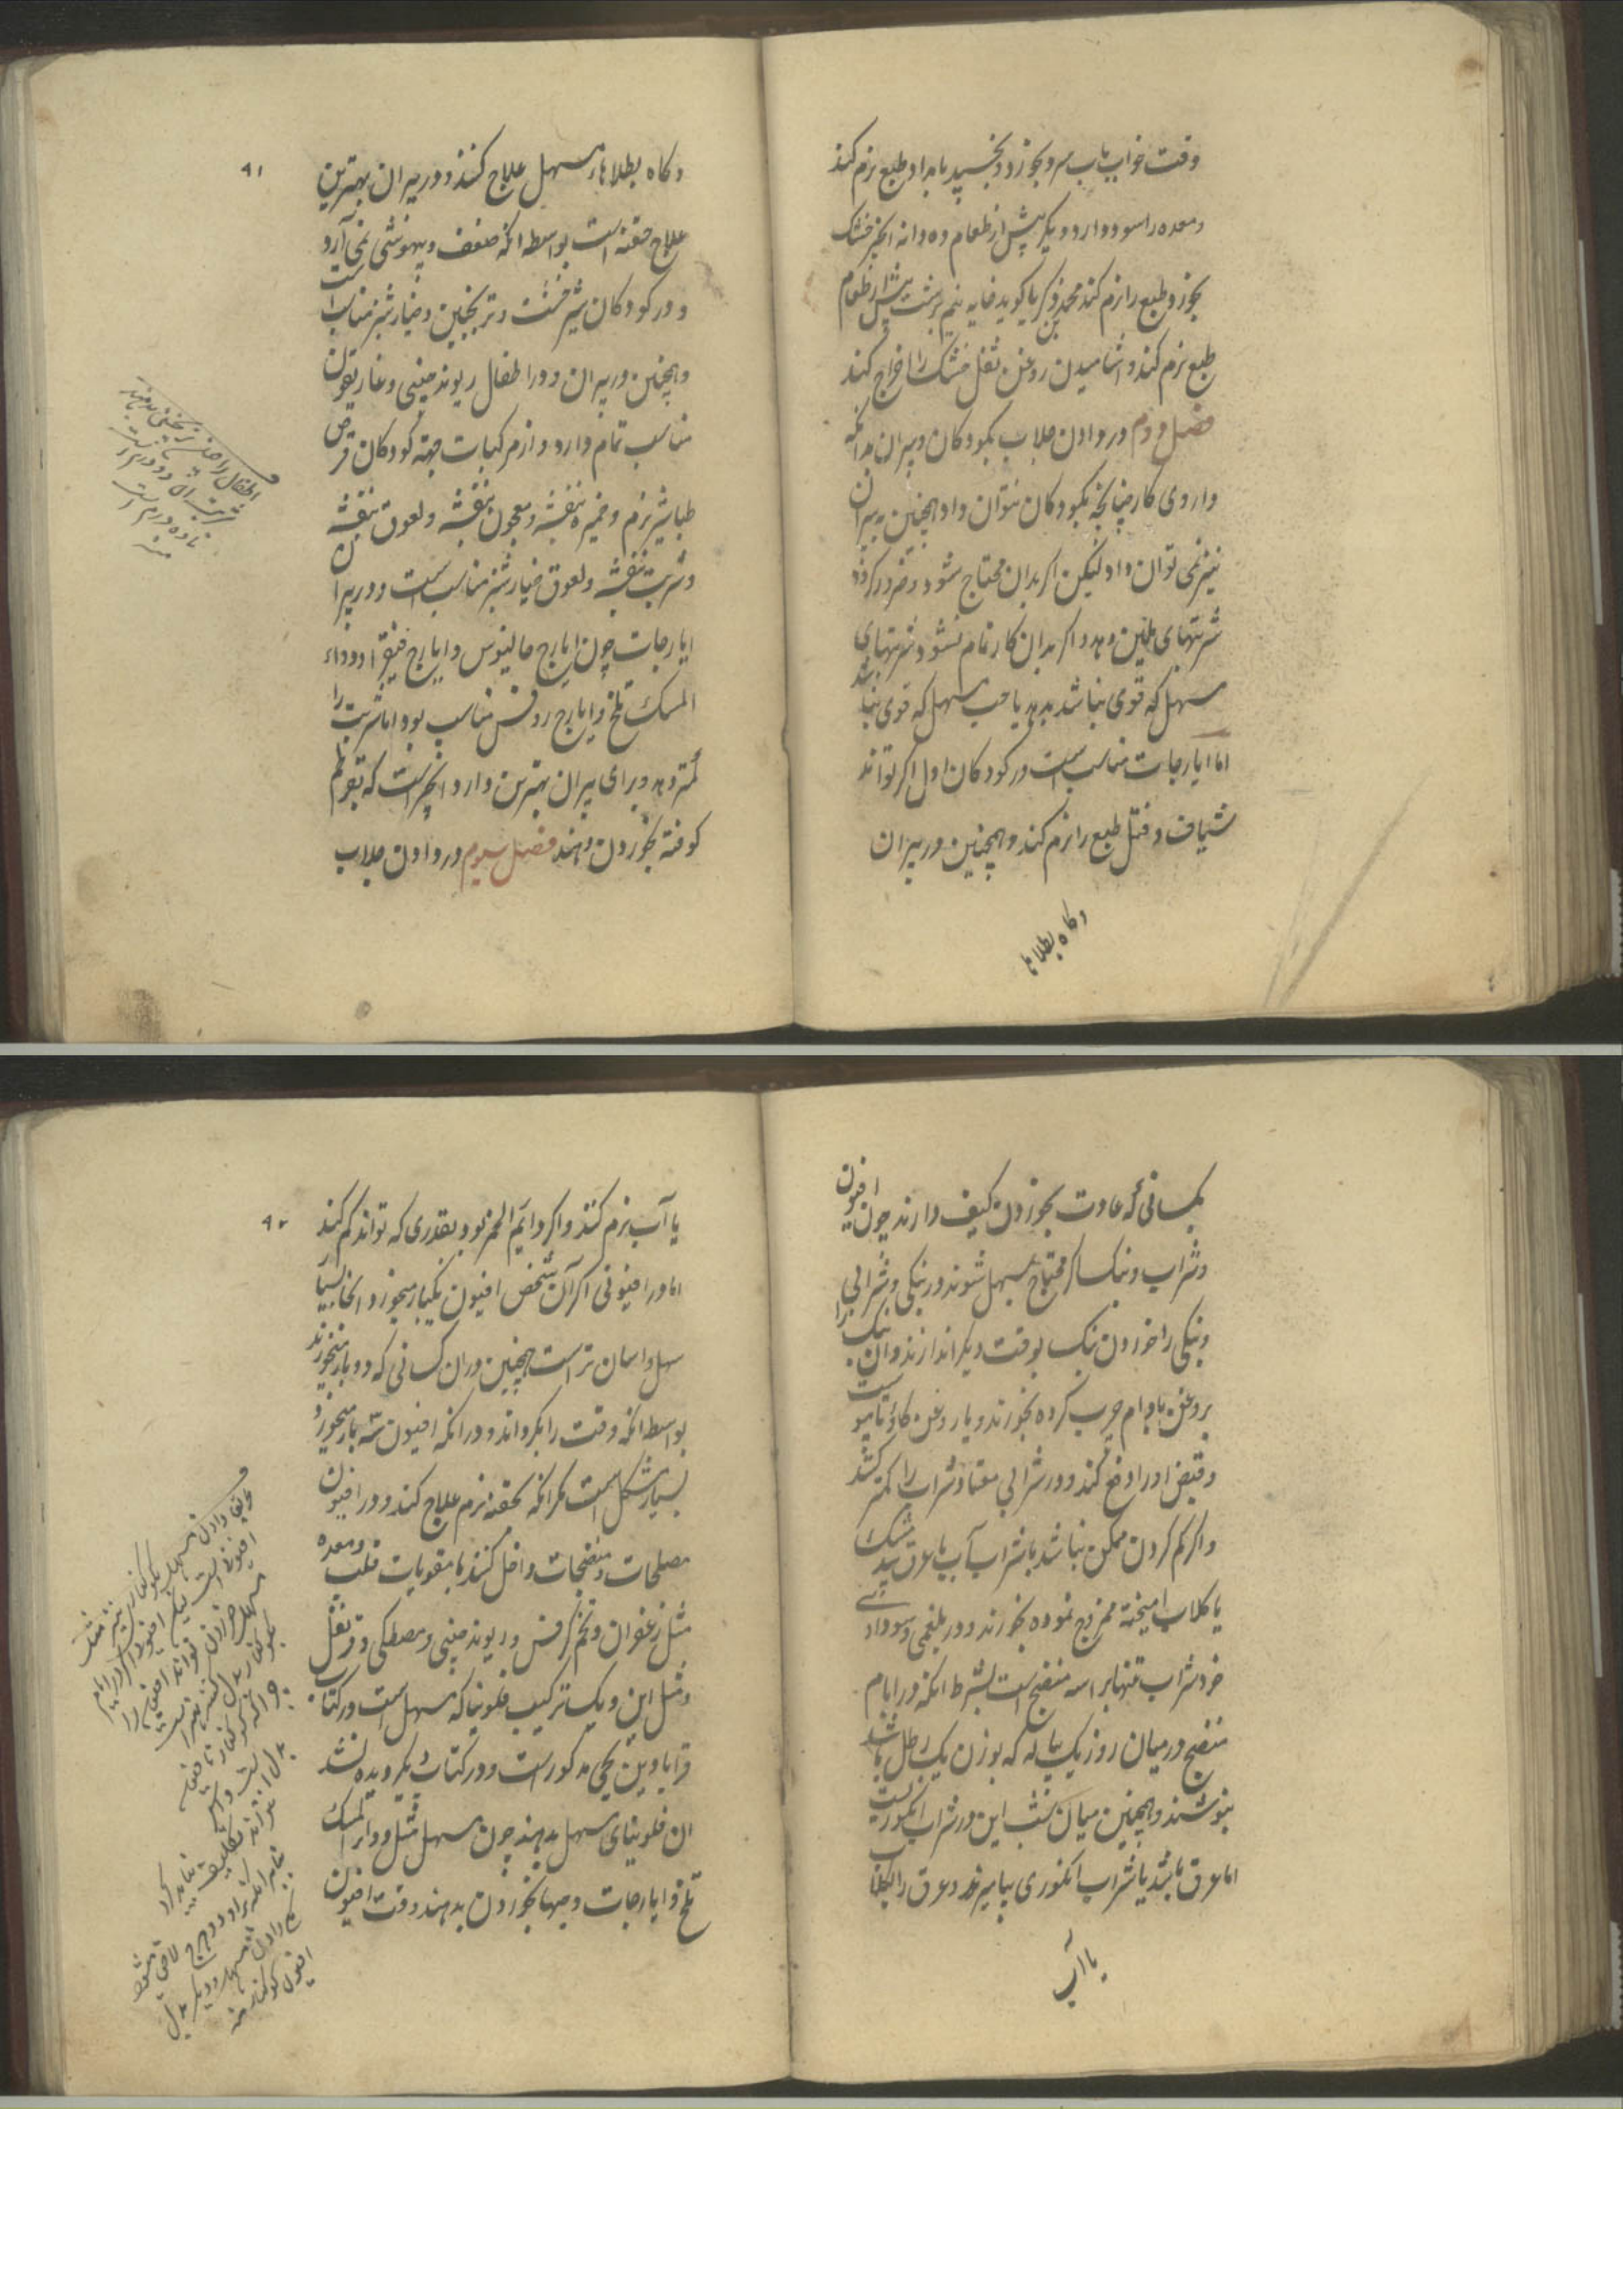 وقت خواب باب سرد بخورد و بخسپد بامداد طبع نرم کند
و معده را سود دارد و دیکر پیش از طعام ده دانه انجیر خشک
بخورد طبع را نرم کند محمد زکریا کوید خایه نیم برشت پیش از طعام
طبع نرم کند و اشامیدن روغن ثفل خشک را اخراج کند
فصل دوم در دادن جلاب بکودکان و پیران بدانکه
داروی کار چنانچه بکودکان نتوان داد همچنین به پیران
نیز نمی توان داد لیکن اکر بدان محتاج شود و ضرور کردد
شربتهای ملین دهد و اکر بدان کار تمام نشود شربتهای
مسهل که قوی نباشد بدهد یا حب مسهل که قوی نباشد
اما ایارجات مناسب است در کودکان اول اکر توانند
شیاف و فتل طبع را نرم کند و همچنین در پیران
وکاه بطلاها
۹۱
وکاه بطلاهاء مسهل علاج کنند و در پیران بهترین
علاج حقنه است بواسطه انکه ضعف و بیهوشی نمی آرد
و در کودکان شیر خشت و ترنجبین و خیار شنبر مناسب است
و همچنین در پیران و در اطفال ریوند چینی و غاریقون
مناسب تمام دارد و از مرکبات جهة کودکان قرص
طباشیر نرم و خمیره بنفشه و معجون بنفشه و لعوق بنفشه
و شربت بنفشه و لعوق خیار شنبر مناسب است و در پیران
ایارجات چون ایارج جالینوس و ایارج فیقرا و دواء
المسک تلخ و ایارج روفس مناسب بود اما شربت را
کمتر دهد و برای پیران بهترین دارو انجیر است که بقرطم
کوفته بخوردن دهند فصل سیوم در دادن جلاب
بکسانی که عادت بخوردن کیف دارند چون افیون
و شراب و بنک اکر محتاج مسهل شوند در بنکی و شرابی
و بنکی را خوردن بنک بوقت دیکر اندازند و ان بنک را
بروغن بادام چرب کرده بخورند و یا روغن کاو تا یبوست
و قبض او را دفع کند و در شرابی معتاد شراب را کمتر کشد
و اکر کم کردن ممکن نباشد با شراب آب یا عرق بید مشک
یا کلاب امیخته ممزوج نموده بخورند و در بلغمی و سوداوی
خود شراب تنها براسه منضج است بشرط انکه در ایام
منضج در میان روز یک پیاله که بوزن یک رطل باشد
بنوشند و همچنین میان شب این در شراب انکوریست
اما عرق باشد با شراب انکوری بیامیزند و عرق را
با آب
۹۲
با آب نرم کنند و اکر دایم الخمر بود بقدری که تواند کم کند
اما در افیونی اکر آن شخص افیون یکبار میخورد انجا بسیار
سهل و اسان تر است همچنین دران کسانی که دو بار میخورند
بواسطه انکه وقت را بکرداند و در انکه افیون سه بار میخورد
بسیار مشکل است مکر انکه بحقنه نرم علاج کند و در افیون
مصلحات و منضجات داخل کنند با مقویات قلب و معده
مثل زعفران و تخم کرفس و ریوند چینی و مصطکی و قرنفل
و مثل این و یک ترکیب فلونیا که مسهل است در کتاب
قرابادین یحیی مذکور است و در کتاب دیکر دیده نشد
ان فلونیای مسهل بدهند چون مسهل مثل دواء المسک
تلخ و ایارجات و حبها بخوردن بدهند وقت افیون